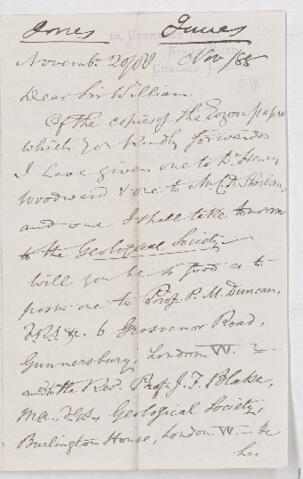 Jones Jones
November 20/88 Nov/88
Dear Sir William
Of the copies of the Eozoon paper
which you kindly forwarded
I have given one to Dr. Henry
Woodward & one to Mr. C. D. Sherborn,
and one I shall take tomorrow
to the Geological Society
Will you be so good as to
post one to Prof. P. M. Duncan,
F.R.S. &c. 6 Grosvenor Road,
Gunnersbury, London W. &
and to the Rev. Prof. J. F. Blake,
M.A., F.G.S., Geological Society,
Burlington House, London W –
has